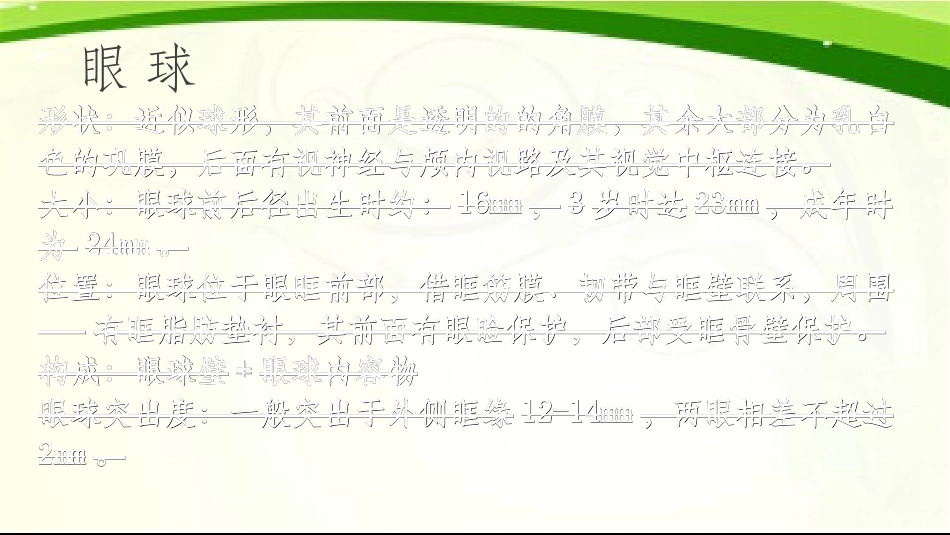 眼 球
形状：近似球形，其前面是透明的的角膜，其余大部分为乳白
色的巩膜，后面有视神经与颅内视路及其视觉中枢连接。
大小：眼球前后径出生时约： 16mm ， 3 岁时达 23mm ，成年时
为 24mm 。
位置：眼球位于眼眶前部，借眶筋膜、韧带与眶壁联系，周围
有眶脂肪垫衬，其前面有眼睑保护，后部受眶骨壁保护。
构成：眼球壁 + 眼球内容物
眼球突出度：一般突出于外侧眶缘 12-14mm ，两眼相差不超过
2mm 。